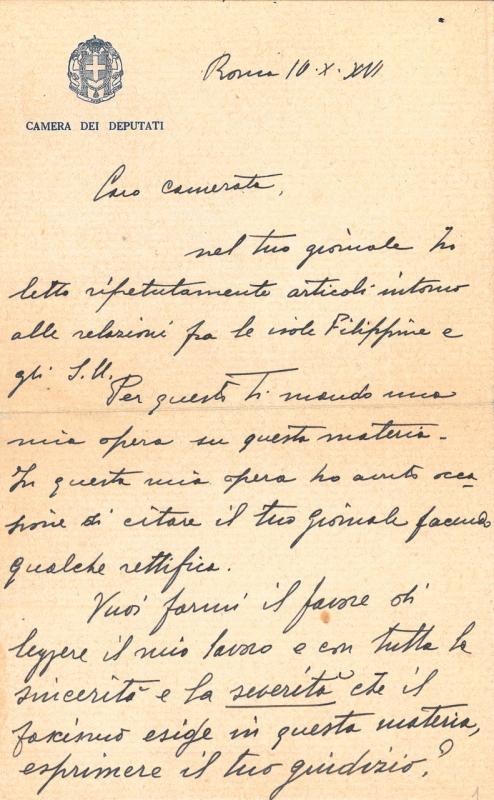 Roma 10. X. XVI
CAMERA DEI DEPUTATI
Caro camerata,
nel tuo giornale ho
letto ripetutamente articoli intorno
alle relazioni fra le isole Filippine e
gli S.U.
Per questo Ti mando una
mia opera su questa materia.
In questa mia opera ho avuto occa
sione di citare il tuo giornale facendo
qualche rettifica.
Vuoi farmi il favore di
leggere il mio lavoro e con tutta la
sincerità e la severità che il
fascismo esige in questa materia,
esprimere il tuo giudizio?
1